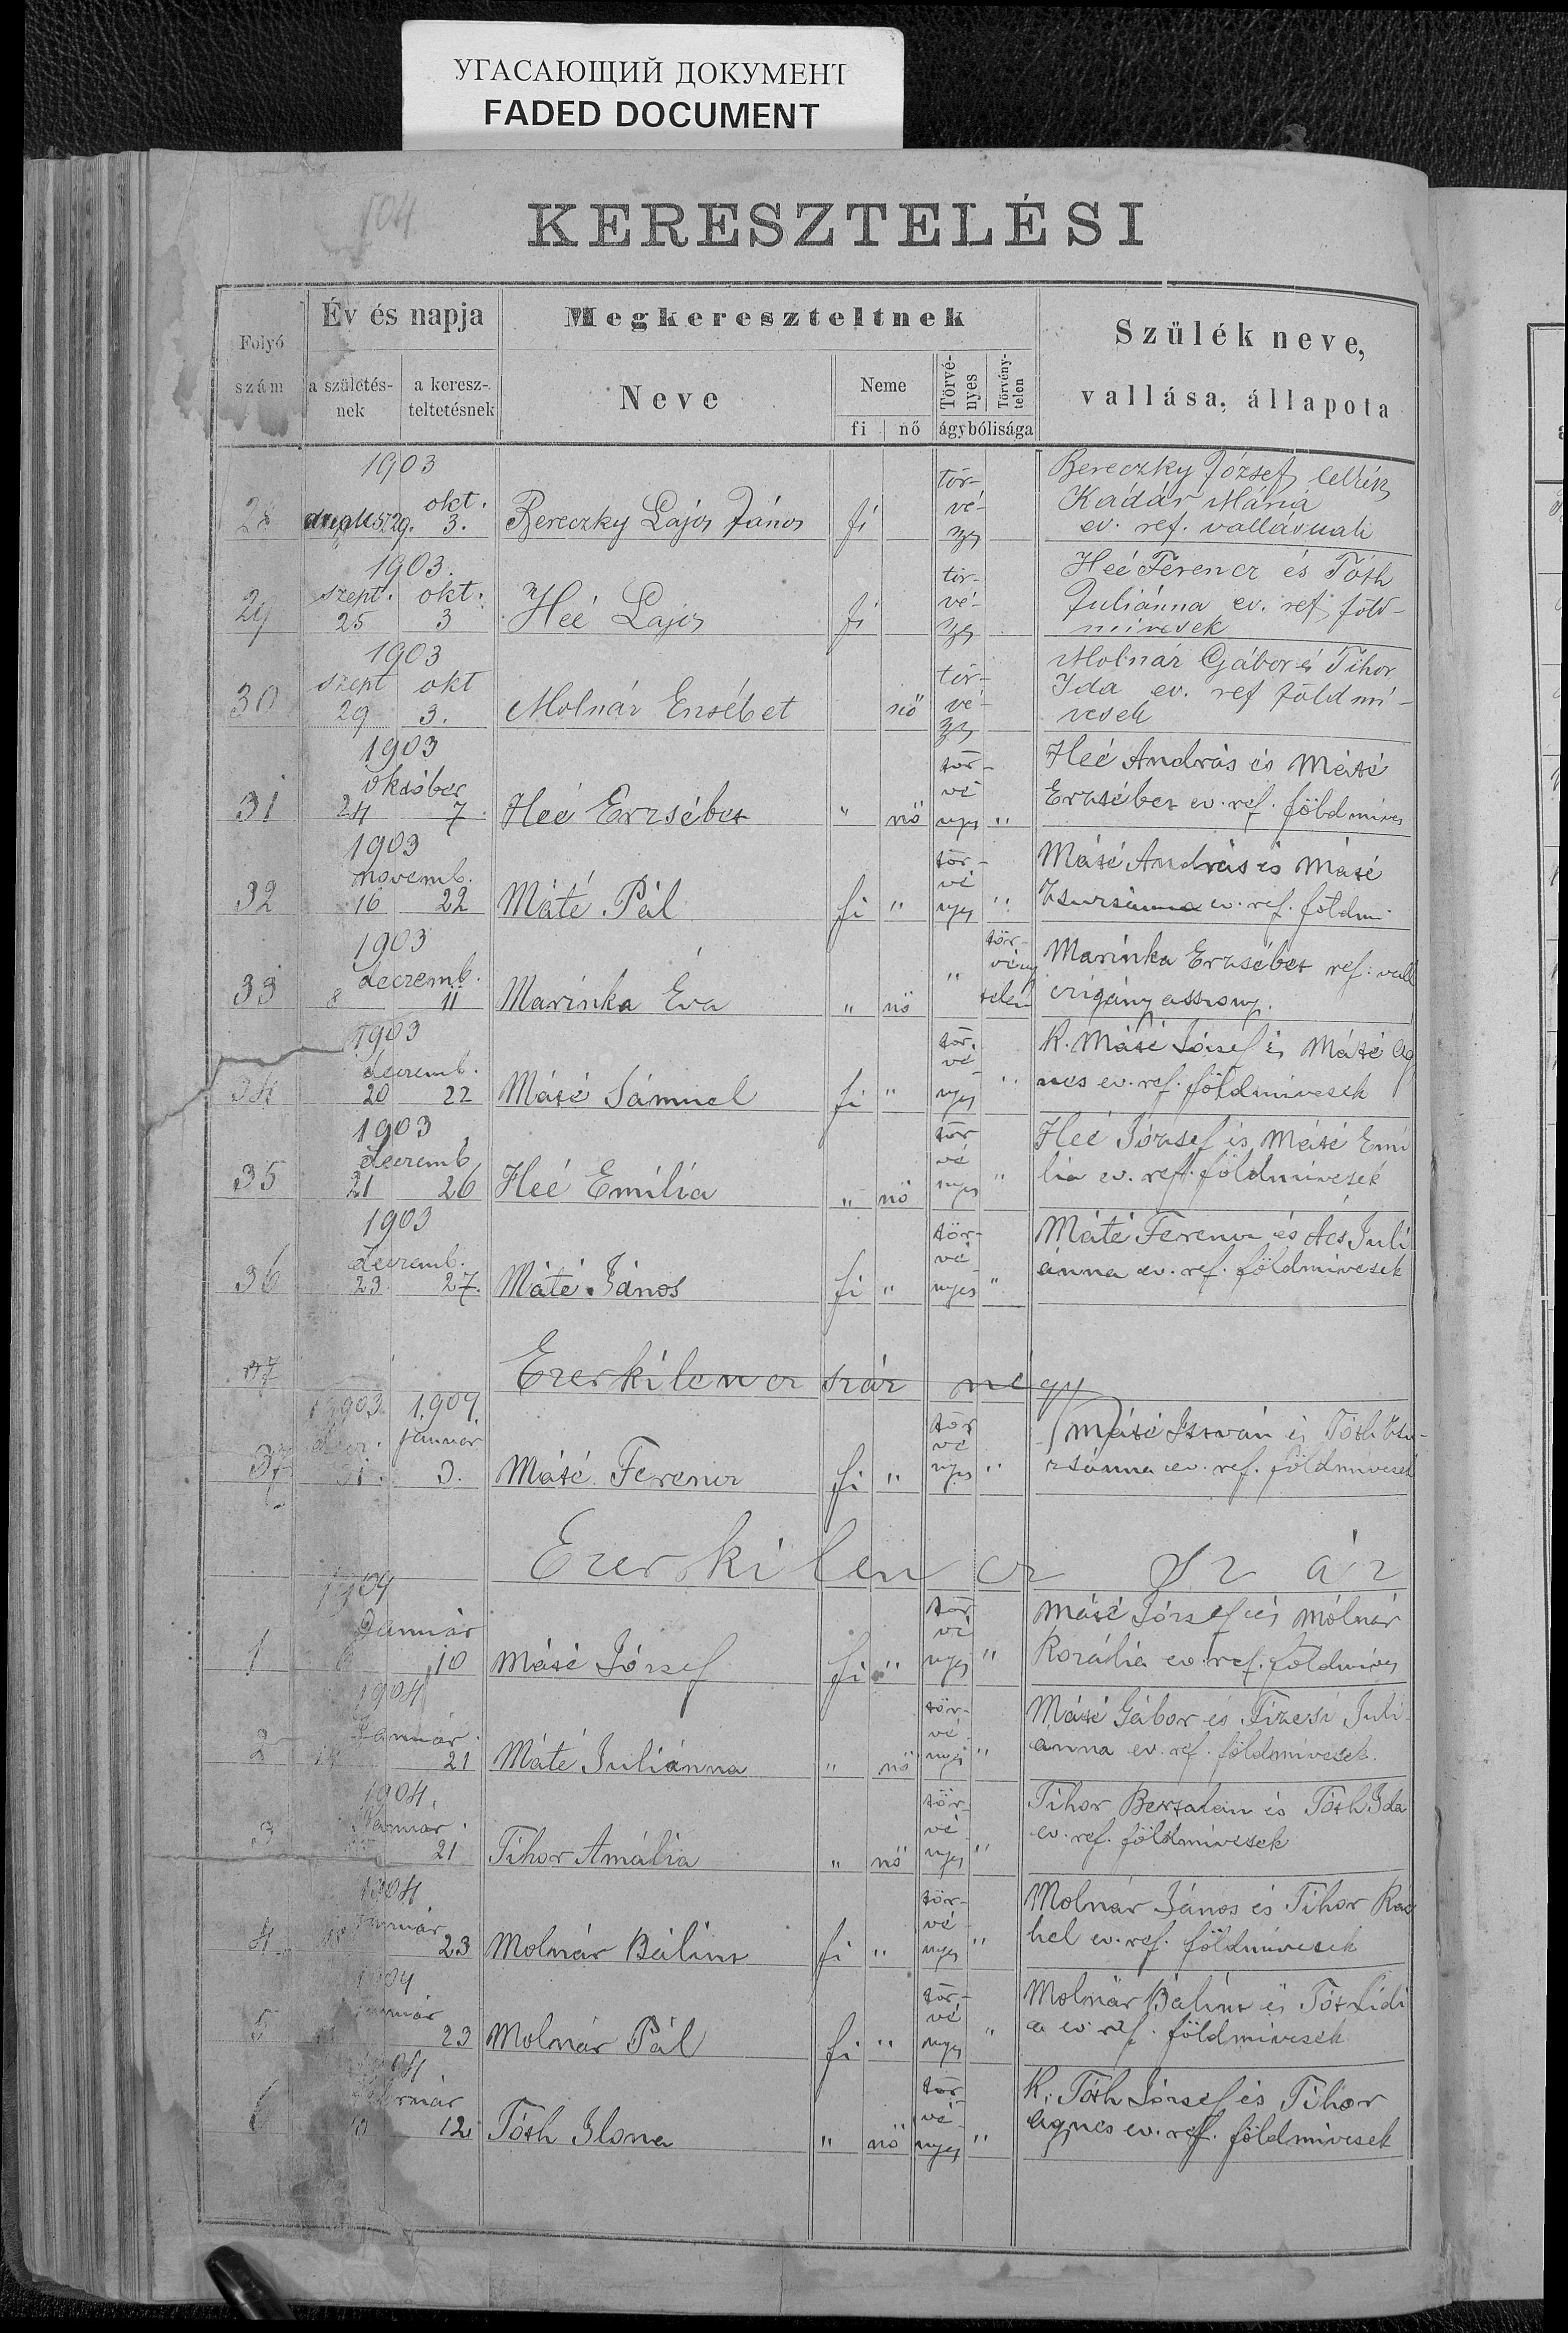 УГАСАЮЩИЙ ДОКУМЕНТ
FADED DOCUMENT
504
KERESZTELÉSI
Folyó szám
Év és napja
a születés-nek
a keresz-teltetésnek
Megkereszteltnek
Neve
Neme
fi nő
Törvé-nyes Törvény-telen
ágybólisága
Szülék neve,
vallása, állapota
1903
28 augus 29. okt. 3. Bereczky Lajos János fi tör-vé-nyes Bereczky József lelkész
Kádár Mária
ev. ref. vallásuak
1903.
29 szept. 25 okt. 3 Heé Lajos fi tör-vé-nyes Heé Ferencz és Tóth
Juliánna ev. ref. föld-
mivesek
1903
30 szept 29 okt 3. Molnár Erzsébet nő tör-vé-nyes Molnár Gábor és Tihor
Ida ev. ref földmi-
vesek
1903
október
31 24 7. Heé Erzsébet " nő tör-vé-nyes " Heé András és Máté
Erzsébet ev. ref. földmives
1903
novemb.
32 16 22 Máté Pál fi " tör-vé-nyes " Máté András és Máté
Zsuzsánna ev. ref. földmi
1903
deczemb.
33 8 11 Marinka Éva " nő " tör-vény-telen Marinka Erzsébet ref. vall
czigány asszony.
1903
deczemb.
34 20 22 Máté Sámuel fi " tör-vé-nyes " K. Máté József és Máté Ág
nes ev. ref. földmivesek
1903
deczemb
35 21 26 Heé Emilia " nő tör-vé-nyes " Heé József és Máté Emi
lia ev. ref. földmivesek
1903
deczemb.
36 23 27. Máté János fi " tör-vé-nyes " Máté Ferencz és Ács Juli
ánna ev. ref. földmivesek
37 Ezerkilencz száz négy
1903. 1904.
37 decz. 31. január 3. Máté Ferencz fi " tör-vé-nyes " Máté István és Tóth Zsu-
zsánna ev. ref. földmivesek
Ezerkilencz száz
1904
Január
1 10 Máté József fi " tör-vé-nyes " Máté József és Mólnár
Rozália ev. ref. földmives
1904
Január.
2 21 Máté Juliánna " nő tör-vé-nyes " Máté Gábor és Füzesi Juli-
ánna ev. ref. földmivesek.
1904.
Január.
3 21 Tihor Amália " nő tör-vé-nyes " Tihor Bertalan és Tóth Ida
ev. ref. földmivesek
1904
Január
4 23 Molnár Bálint fi " tör-vé-nyes " Molnár János és Tihor Rá
hel ev. ref. földmivesek
1904
Január
5 23 Molnár Pál fi " tör-vé-nyes " Molnár Bálint és Tót Lidi
a ev. ref. földmivesek
1904
Február
6 10 12 Tóth Ilona " nő tör-vé-nyes " K. Tóth József és Tihor
Ágnes ev. ref. földmivesek